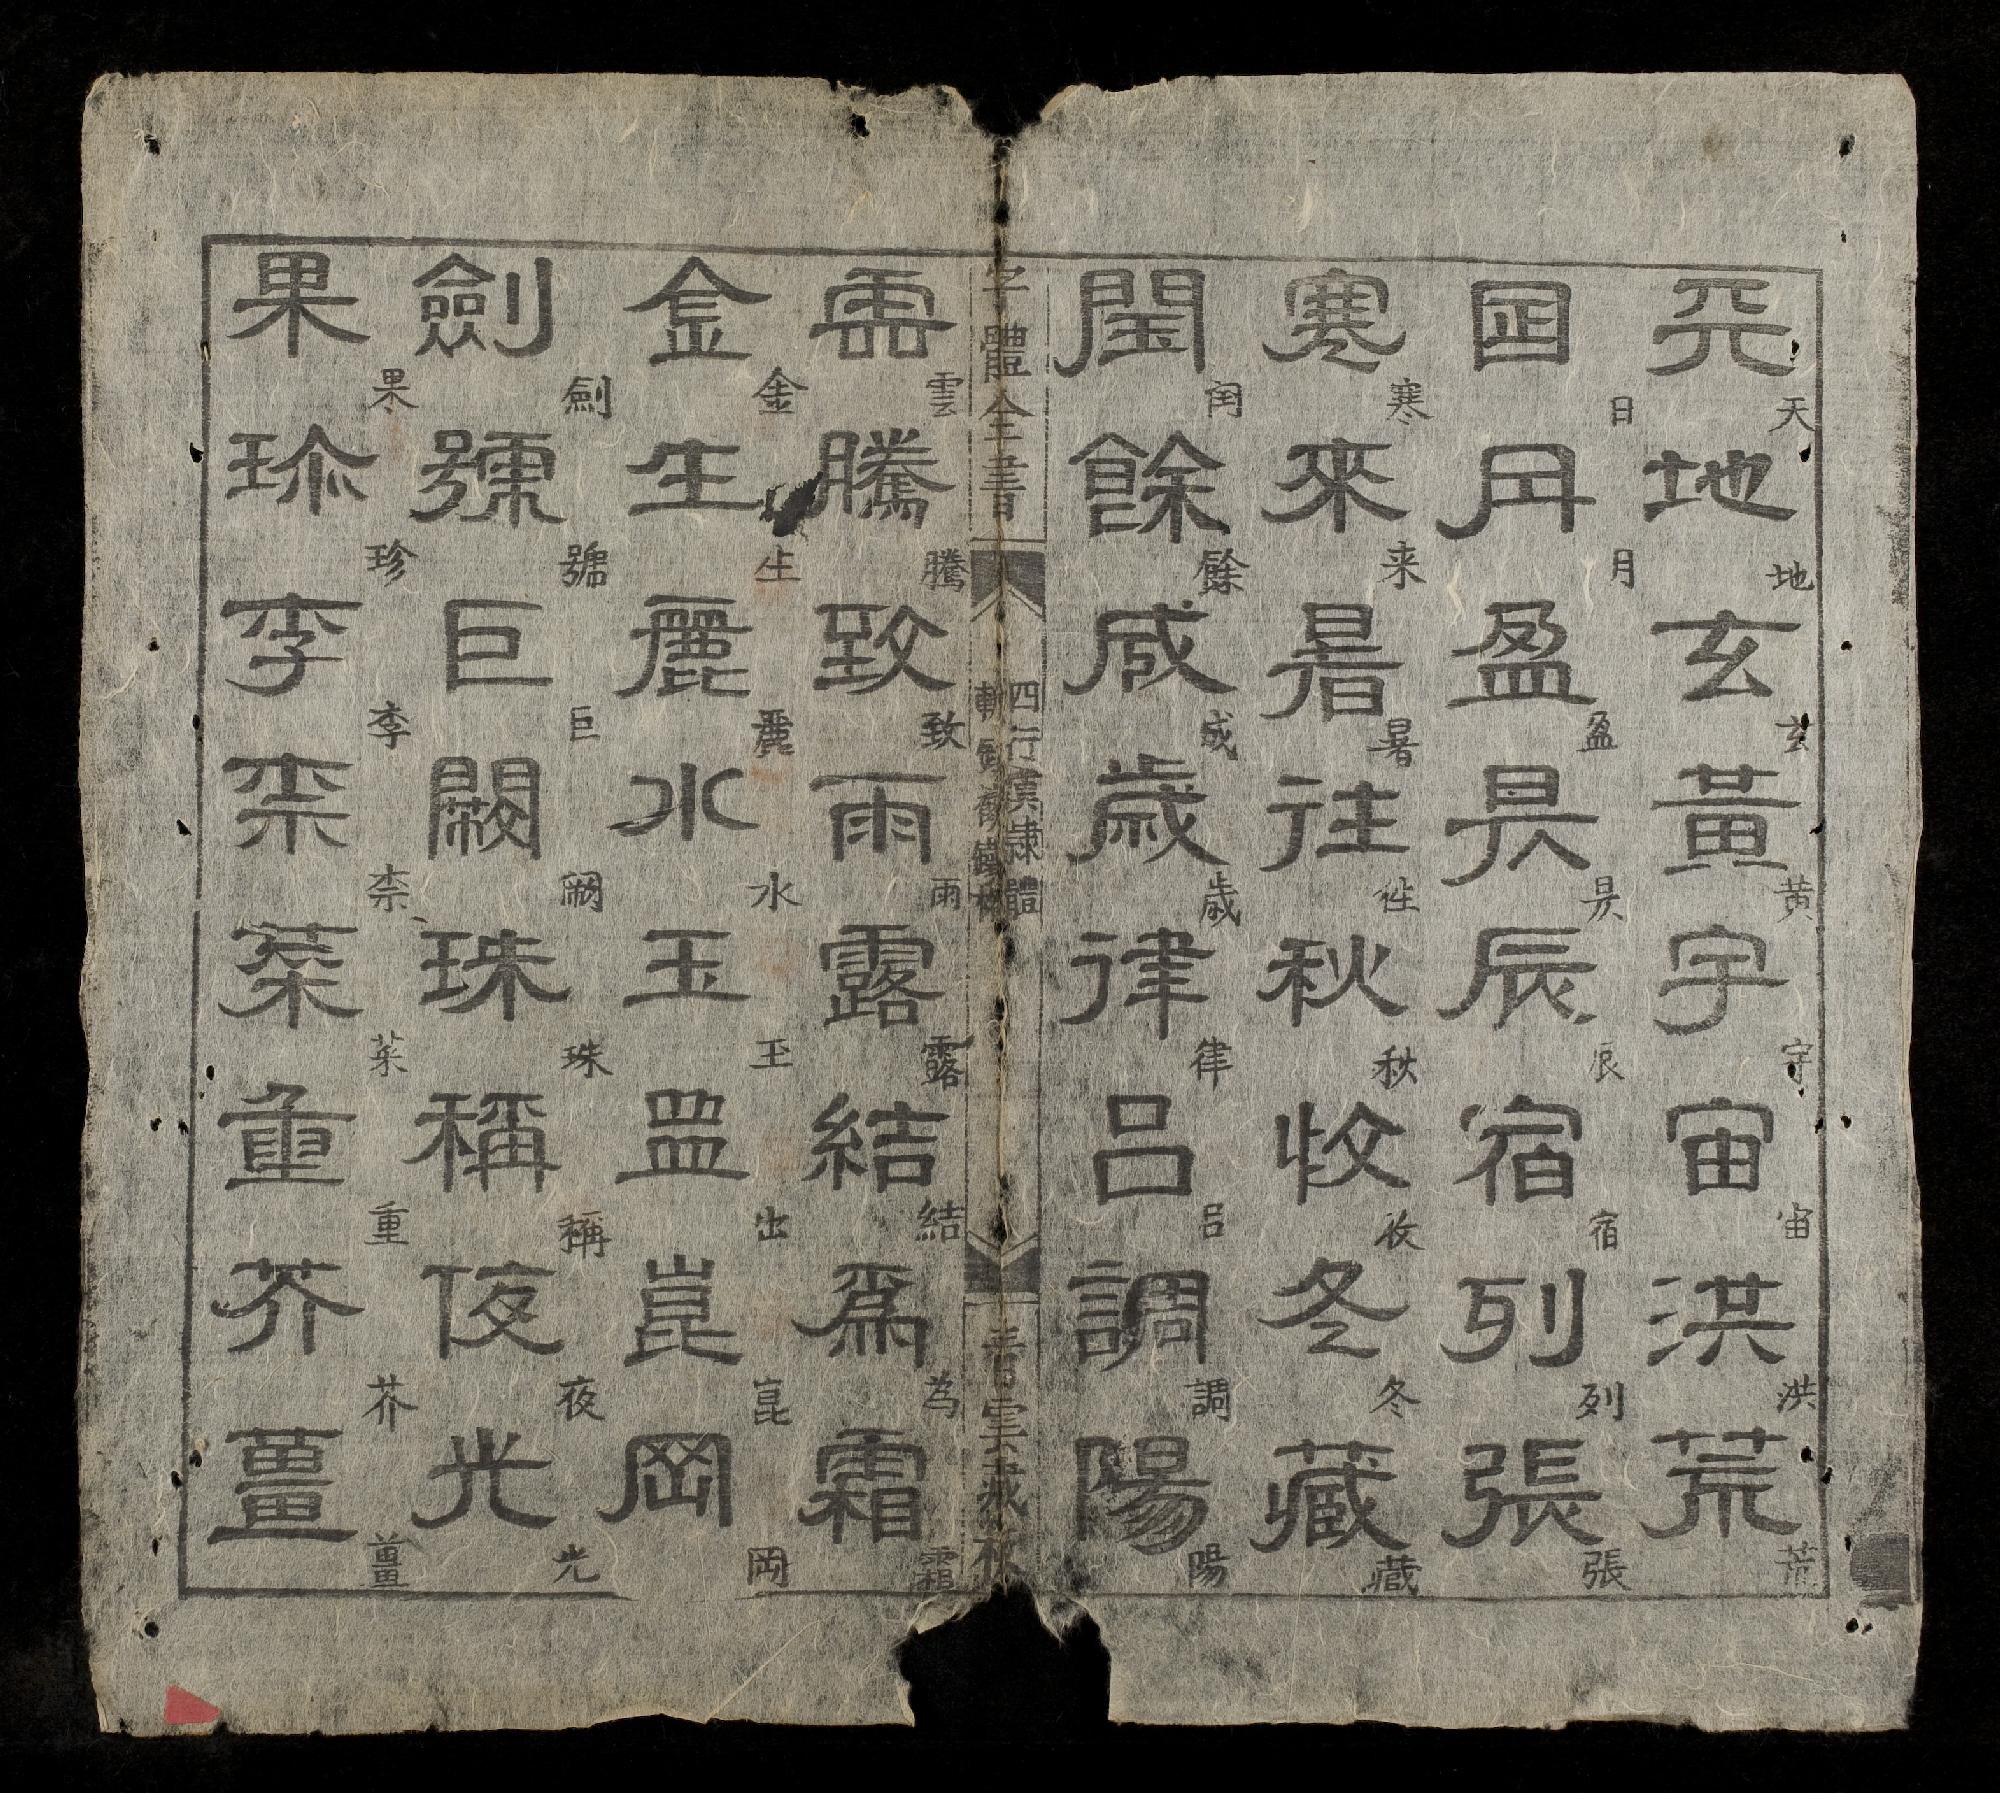 天地玄黃宇宙洪荒
天地玄黄宇宙洪荒
日月盈昃辰宿列張
日月盈昃辰宿列張
寒來暑往秋收冬藏
寒来暑徃秋收冬藏
閏餘成歲律呂調陽
閏餘成歲律呂調陽
字體全書
四行漢隸體
青雲藏板
雲騰致雨露結爲霜
雲騰致雨露結为霜
金生麗水玉出崑岡
金生麗水玉出崑岡
劍號巨闕珠稱夜光
劍號巨闕珠稱夜光
果珍李柰菜重芥薑
果珍李柰菜重芥薑